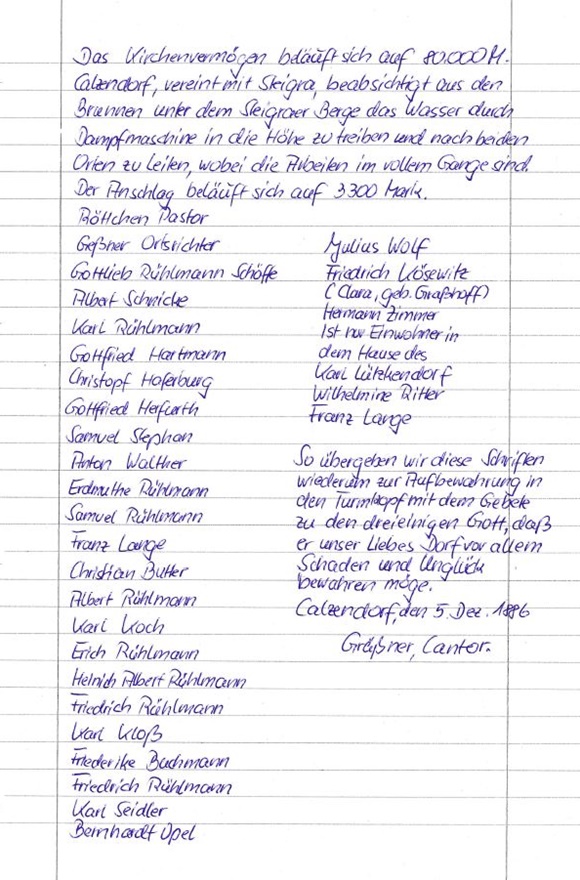 Das Kirchenvermögen beläuft sich auf 80.000 M.
Calzendorf, vereint mit Steigra, beabsichtigt aus den
Brunnen unter dem Steigraer Berge das Wasser durch
Dampfmaschine in die Höhe zu treiben und nach beiden
Orten zu leiten, wobei die Arbeiten im vollem Gange sind.
Der Anschlag beläuft sich auf 3300 Mark.
Böttchen Pastor
Geßner Ortsrichter
Gottlieb Rühlmann Schöffe
Albert Schnicke
Karl Rühlmann
Gottfried Hartmann
Christopf Haferburg
Gottfried Herfurth
Samuel Stephan
Anton Walther
Erdmuthe Rühlmann
Samuel Rühlmann
Franz Lange
Christian Butter
Albert Rühlmann
Karl Koch
Erich Rühlmann
Heinrich Albert Rühlmann
Friedrich Rühlmann
Karl Kloß
Friederike Buchmann
Friedrich Rühlmann
Karl Seidler
Bernhardt Opel
Julius Wolf
Friedrich Kösewitz
(Clara, geb. Graßhoff)
Hermann Zimmer
Ist nur Einwohner in
dem Hause des
Karl Lützkendorf
Wilhelmine Ritter
Franz Lange
So übergeben wir diese Schriften
wiederum zur Aufbewahrung in
den Turmkopf mit dem Gebete
zu den dreieinigen Gott, daß
er unser liebes Dorf vor allem
Schaden und Unglück
bewahren möge.
Calzendorf, den 5. Dez. 1886
Gräßner, Cantor.